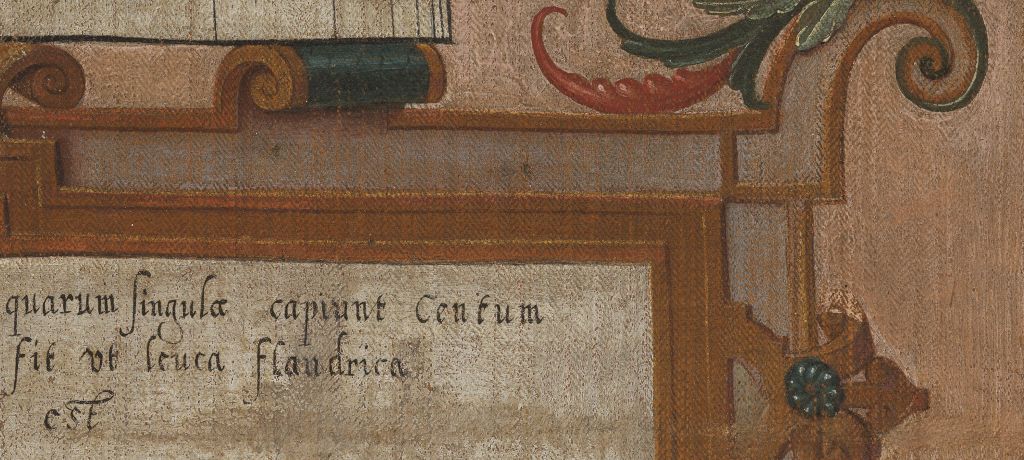 quarum singulæ capiunt Centum
fit vt leuca flandrica
est